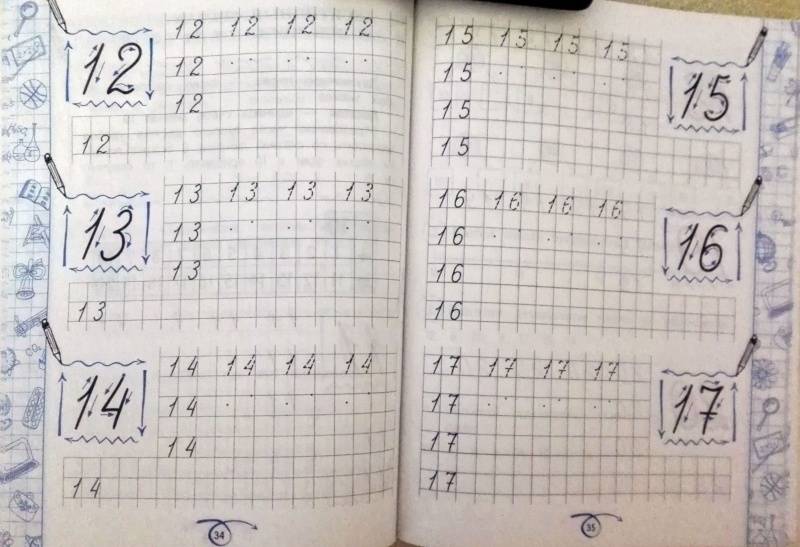 12
12 12 12 12
12
12
12
13
13 13 13 13
13
13
13
14
14 14 14 14
14
14
14
34
15 15 15 15
15
15
15
15
16 16 16 16
16
16
16
16
17 17 17 17
17
17
17
17
35